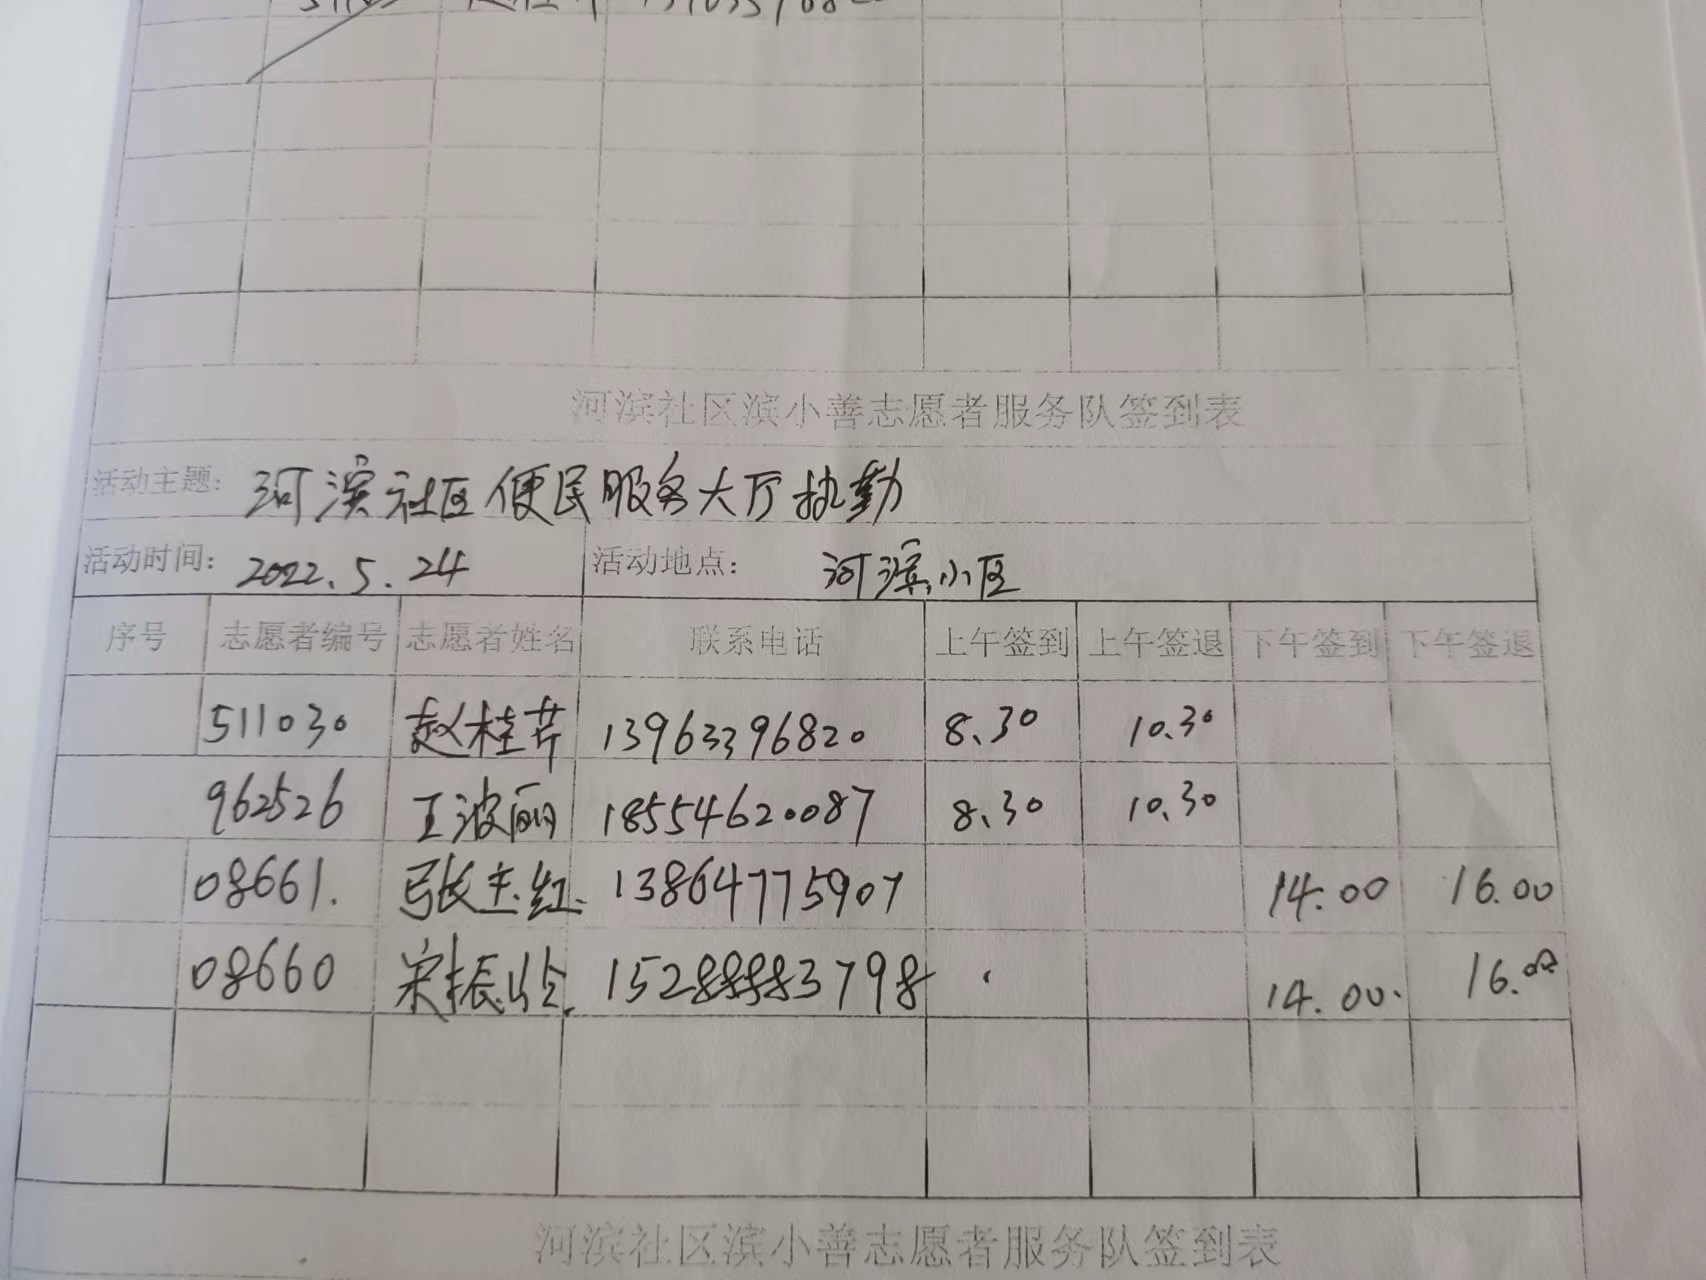 河滨社区滨小善志愿者服务队签到表
活动主题: 河滨社区便民服务大厅执勤
活动时间: 2022.5.24 活动地点: 河滨小区
序号 志愿者编号 志愿者姓名 联系电话 上午签到 上午签退 下午签到 下午签退
511030 赵桂芹 13963396820 8.30 10.30
962526 王波丽 18554620087 8.30 10.30
08661. 张主红 13864775907 14.00 16.00
08660 宋振岭 15288883798 14.00. 16.00
河滨社区滨小善志愿者服务队签到表